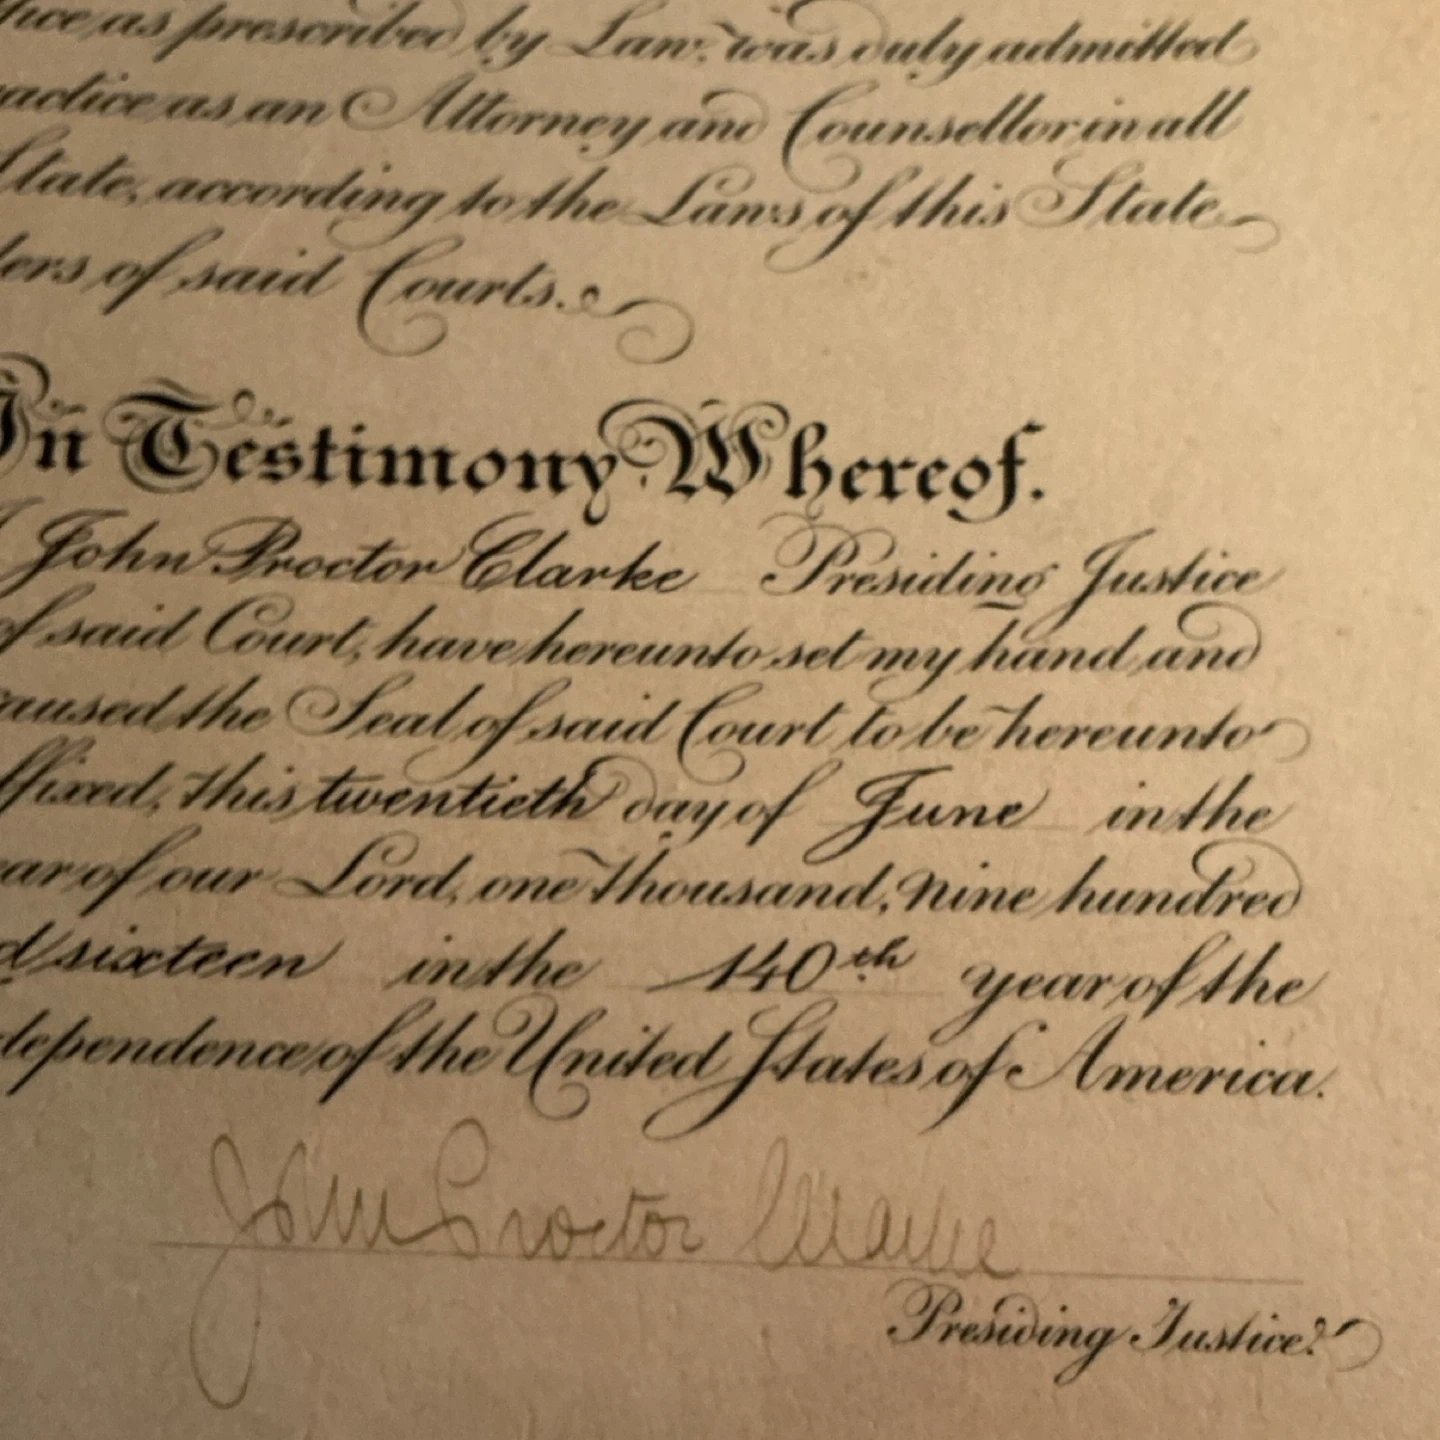 fice as prescribed by Law, was duly admitted
ractice as an Attorney and Counsellor in all
State, according to the Laws of this State
ders of said Courts.
In Testimony Whereof.
I John Proctor Clarke Presiding Justice
of said Court, have hereunto set my hand and
caused the Seal of said Court to be hereunto
ffixed, this twentieth day of June in the
ear of our Lord, one thousand, nine hundred
d sixteen in the 140th year of the
dependence of the United States of America.
John Proctor Clarke
Presiding Justice.